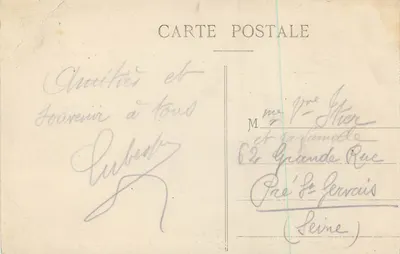 CARTE POSTALE
Amitiés et
souvenir à tous
M me Vve
et sa famille
62 Grande Rue
Pré St Gervais
(Seine)